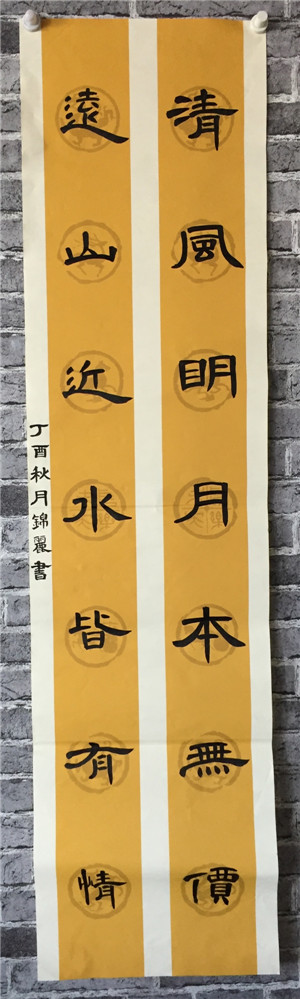 清風明月本無價
遠山近水皆有情
丁酉秋月錦麗書